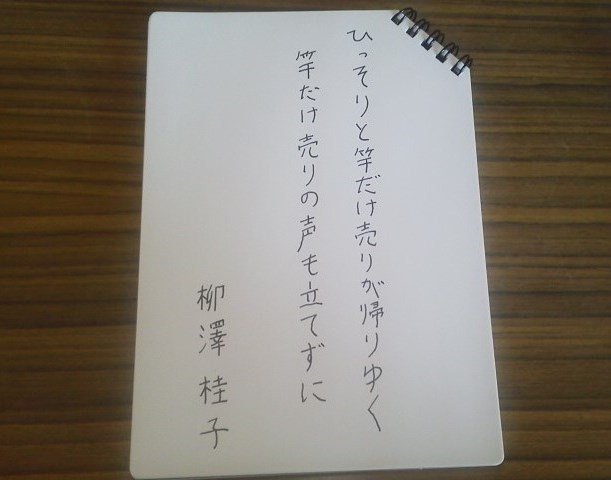 ひっそりと竿だけ売りが帰りゆく
竿だけ売りの声も立てずに
柳澤桂子